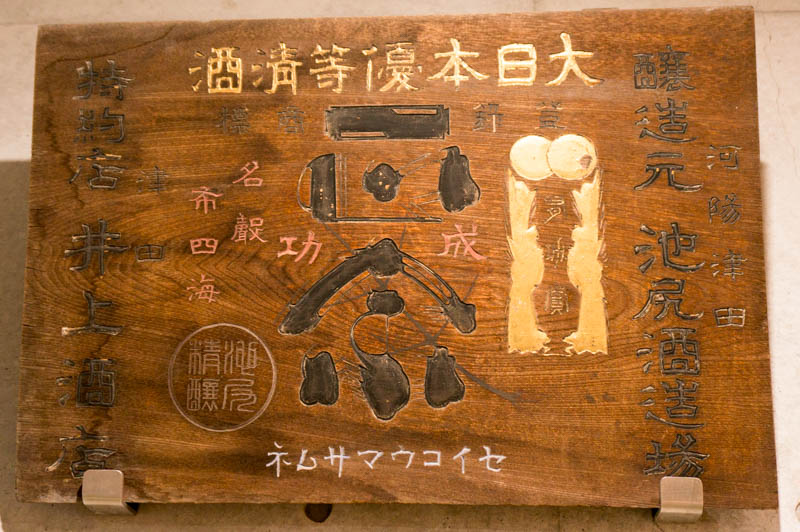 大日本優等清酒
登録商標
河陽津田
釀造元 池尻酒造場
正宗
成功
名聲
布四海
津田
特約店 井上酒店
池尻
精釀
セイコウマサムネ